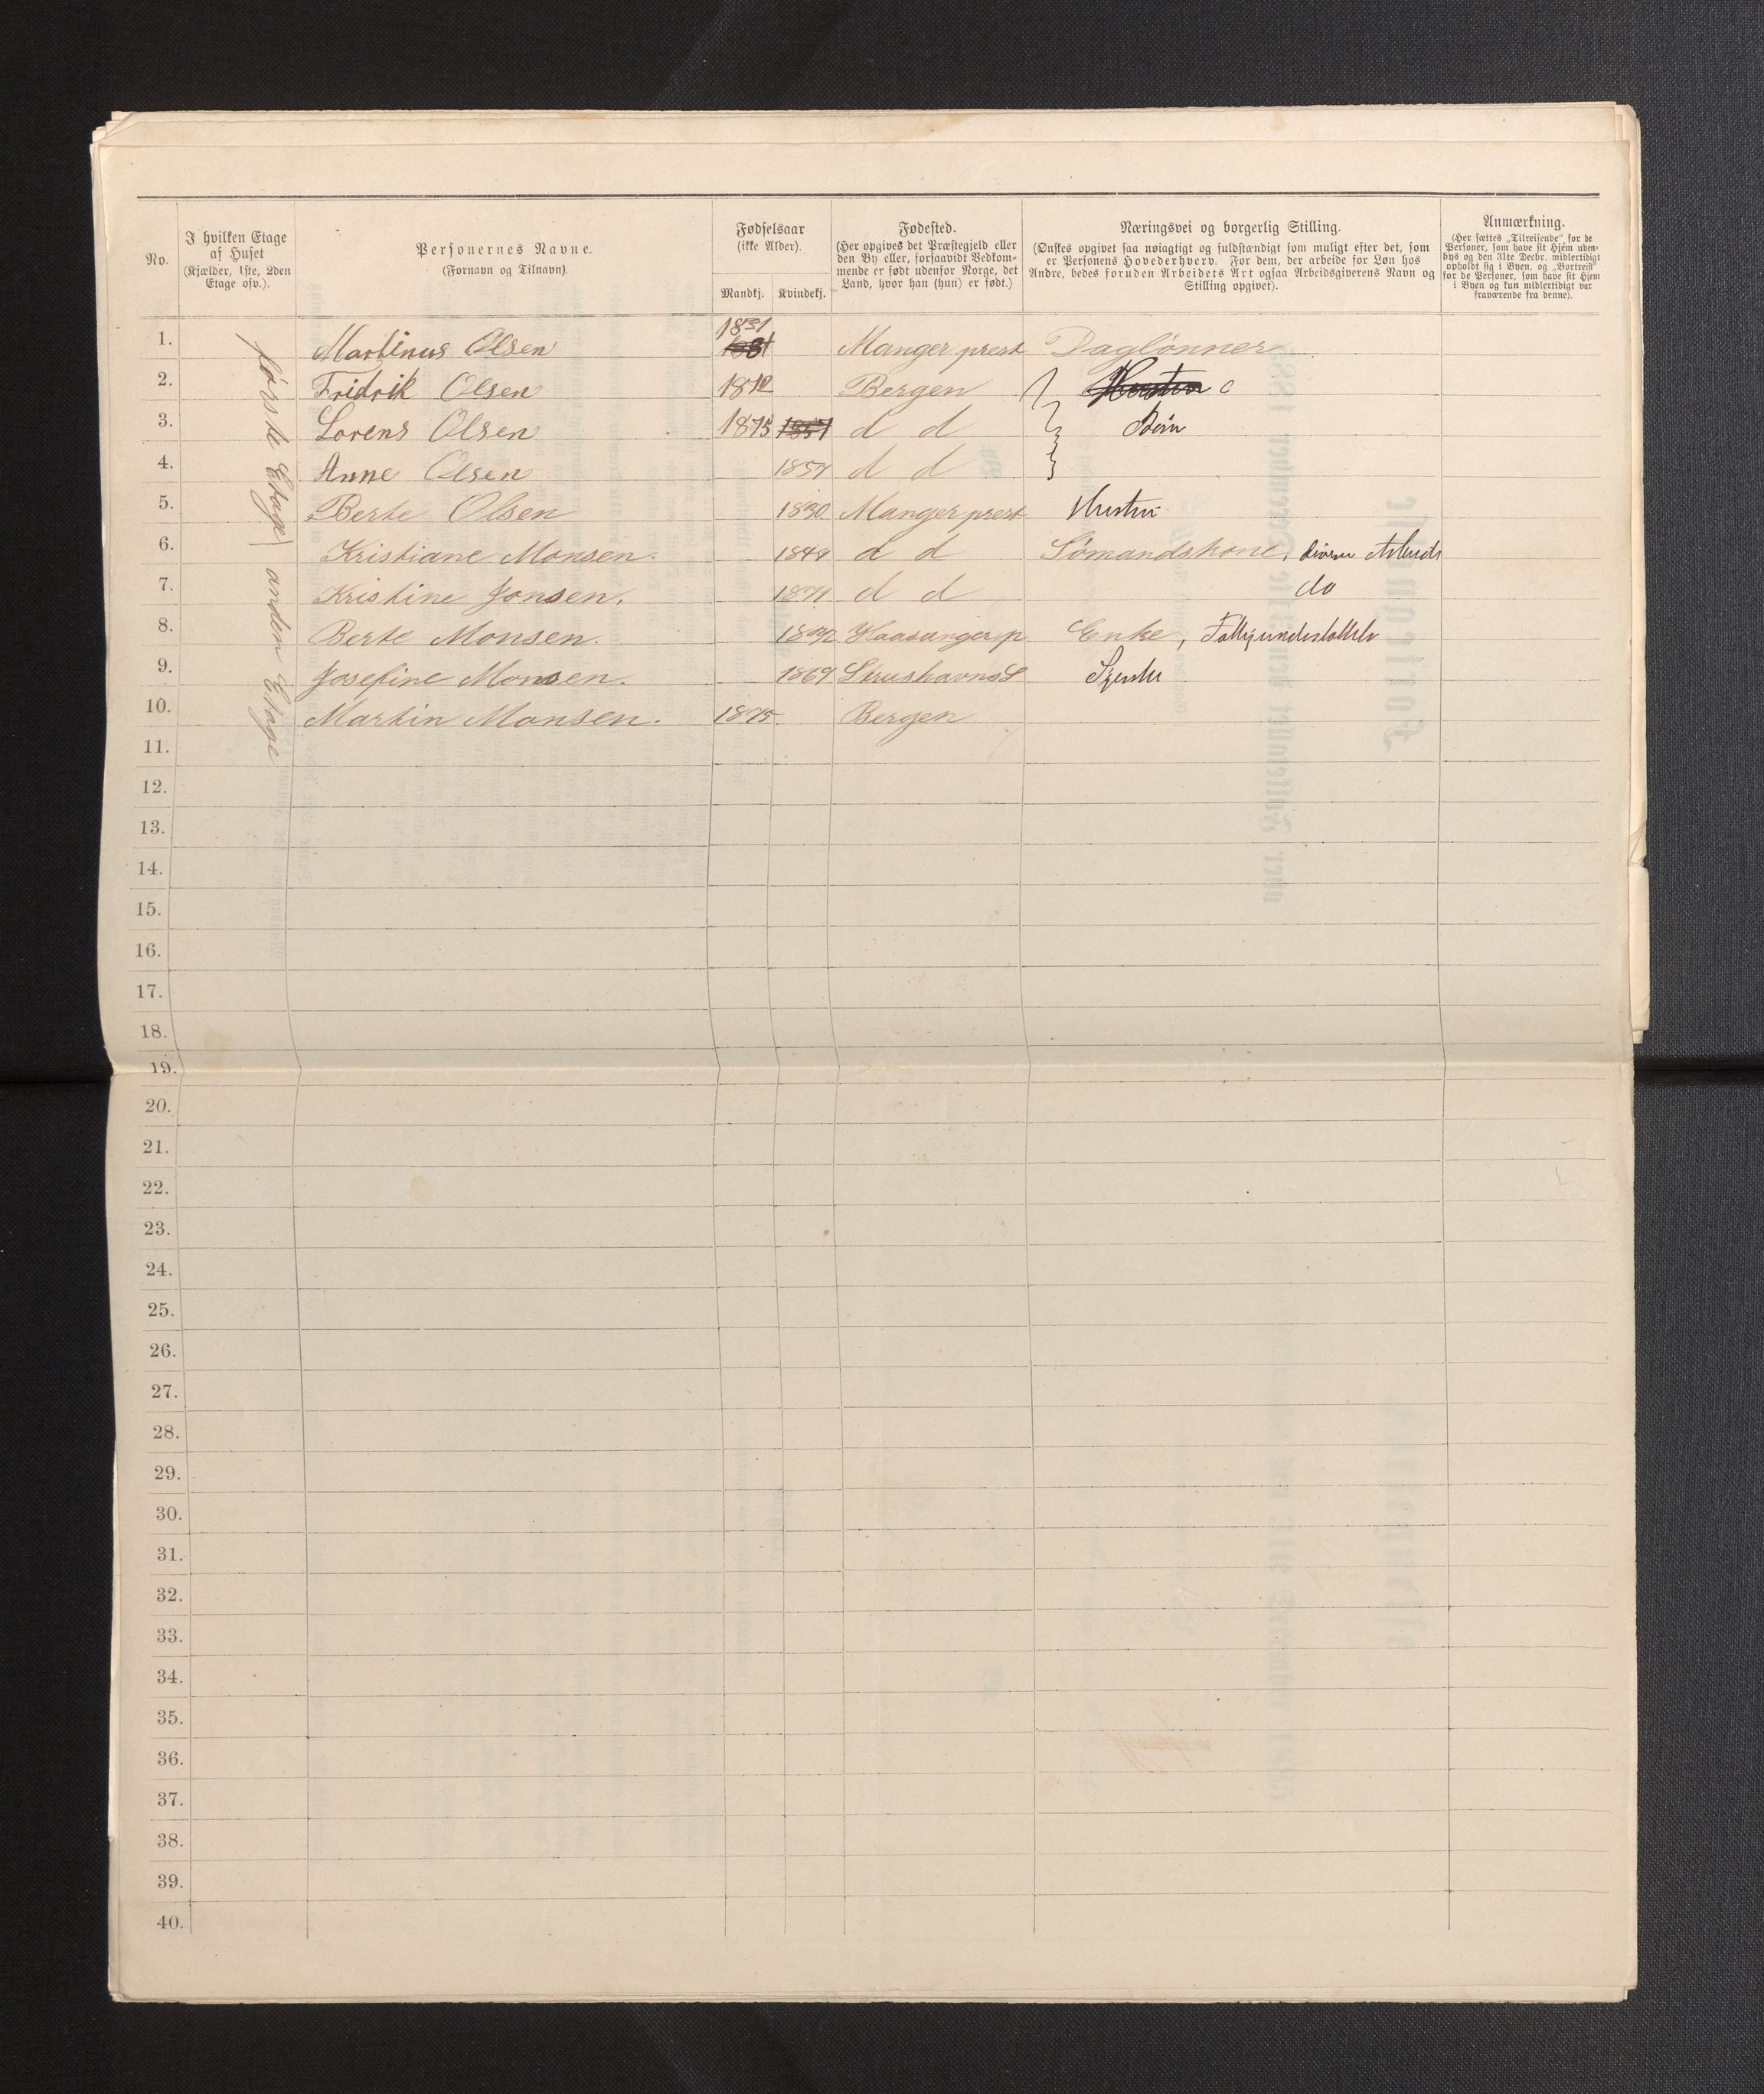 No.
I hvilken Etage af Huset
(Kjælder, 1ste, 2den Etage osv.).
Personernes Navne.
(Fornavn og Tilnavn).
Fødselsaar
(ikke Alder).
Mandkj. Kvindekj.
Fødested.
(Her opgives det Præstegjeld eller
den By eller, forsaavidt Vedkom-
mende er født udenfor Norge, det
Land, hvor han (hun) er født.)
Næringsvei og borgerlig Stilling.
(Ønskes opgivet saa nøiagtigt og fuldstændigt som muligt efter det, som
er Personens Hovederhverv. For dem, der arbeide for Løn hos
Andre, bedes foruden Arbeidets Art ogsaa Arbeidsgiverens Navn og
Stilling opgivet).
Anmærkning.
(Her sættes „Tilreisende" for de
Personer, som have sit Hjem uden-
bys og den 31te Decbr. midlertidigt
opholdt sig i Byen, og „Bortreist"
for de Personer, som have sit Hjem
i Byen og kun midlertidigt var
fraværende fra denne).
første Etage anden Etage
1. Martinus Olsen 1831 Manger prest Daglønner
2. Fridrik Olsen Bergen
3. Lorens Olsen 1875 d d Børn
4. Anne Olsen d d
5. Berte Olsen 1830 Manger prest Hustru
6. Kristiane Monsen. d d Sømandskone,
7. Kristine Jonsen. 1871 d d do
8. Berte Monsen. Enke,
9. Josefine Monsen. 1869
10. Martin Monsen. 1875 Bergen
11.
12.
13.
14.
15.
16.
17.
18.
19.
20.
21.
22.
23.
24.
25.
26.
27.
28.
29.
30.
31.
32.
33.
34.
35.
36.
37.
38.
39.
40.